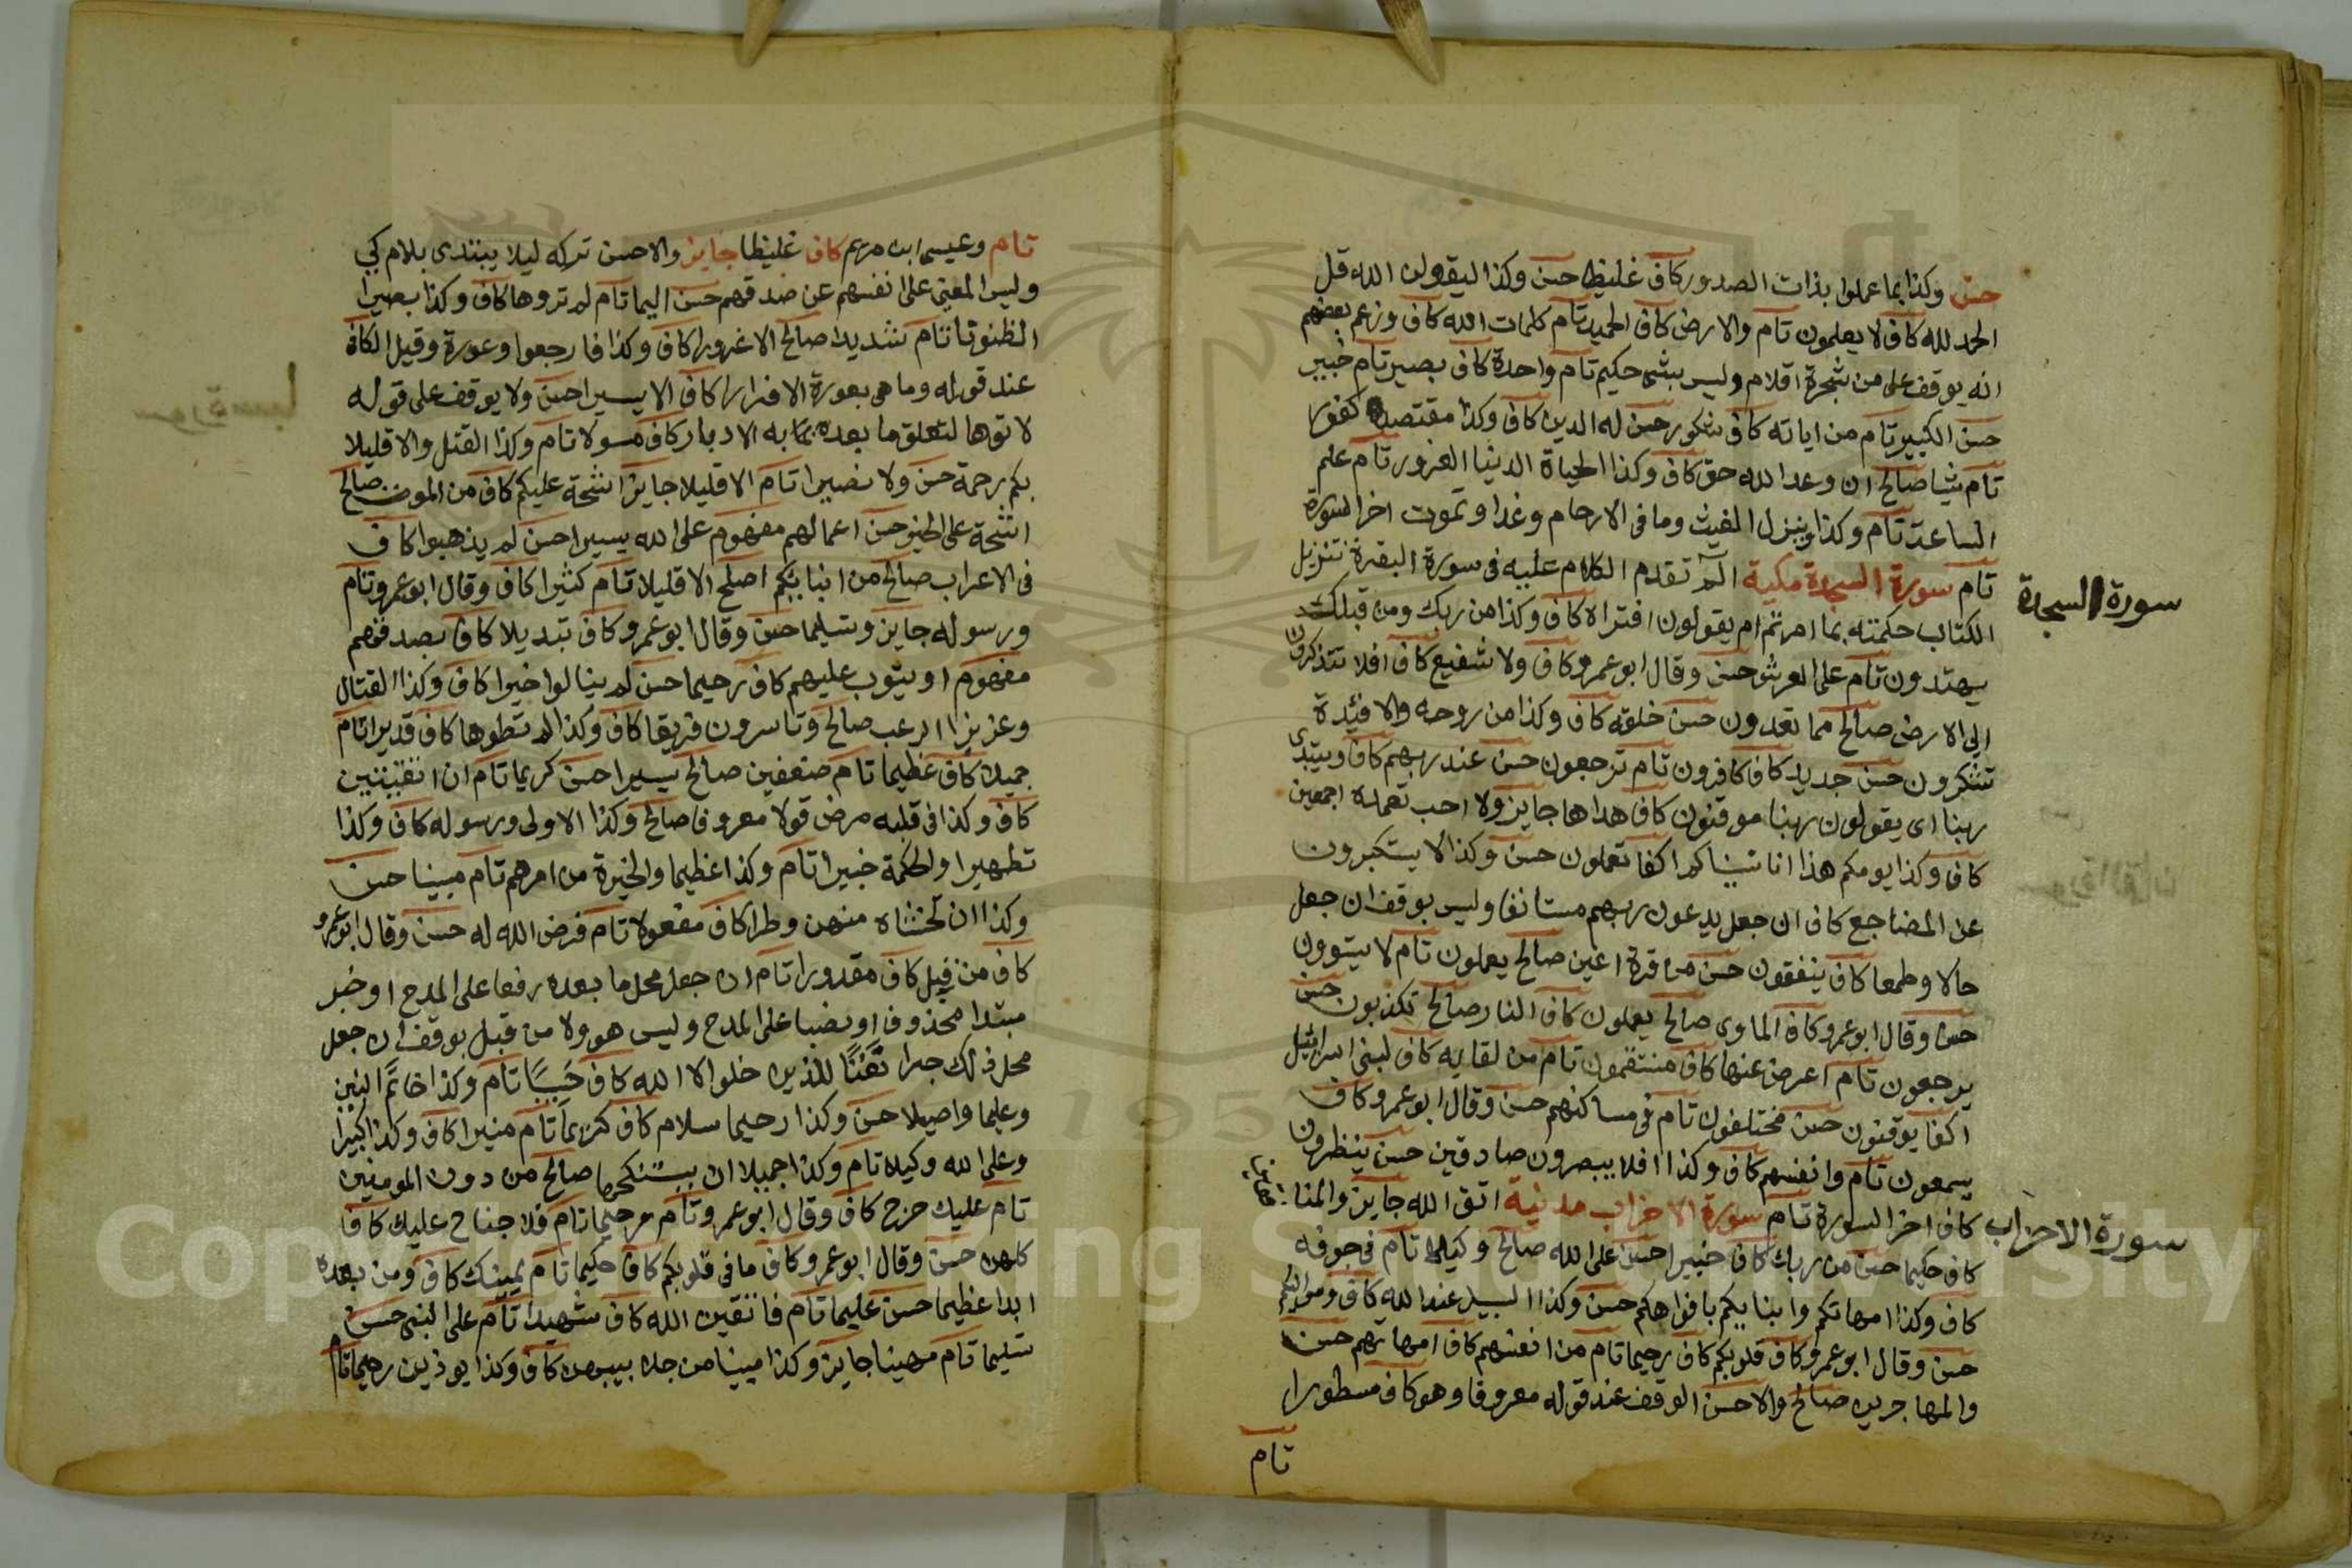 حسن وكذا بما عملوا بذات الصدور كاف غليظ حسن وكذا ليقولن الله قل
الحمد لله كاف لا يعلمون تام والارض كاف الحميد تام كلمات الله كاف وزعم بعضهم
انه يوقف على من شجرة اقلام وليس بشي حكيم تام واحدة كاف بصير تام خبير
حسن الكبير تام من اياته كاف شكور حسن له الدين كاف وكذا مقتصد كفور
تام شيا صالح ان وعد الله حق كاف وكذا الحياة الدنيا الغرور تام علم
الساعة تام وكذا وينزل الغيث وما في الارحام وغدا وتموت اخر السورة
تام سورة السجدة مكية الم تقدم الكلام عليه في سورة البقرة تنزيل
سورة السجدة
الكتاب حكمته بما امر تم ام يقولون افتراه كاف وكذا من ربك ومن قبلك
يهتدون تام على العرش حسن وقال ابو عمرو كاف ولا شفيع كاف افلا تتذكرون
الى الارض صالح مما تعدون حسن خلقه كاف وكذا من روحه والافئدة
تشكرون حسن جديد كاف كافرون تام ترجعون حسن عند ربهم كاف ويبتدى
ربنا اى يقولون ربنا موقنون كاف هداها جايز ولا احب تعمده اجمعين
كاف وكذا يومكم هذا انا نسيناكم اكفا تعملون حسن وكذا لا يستكبرون
عن المضاجع كاف ان جعل يدعون ربهم مستانفا وليس بوقف ان جعل
حالا وطمعا كاف ينفقون حسن من قرة اعين صالح يعملون تام لا يستوون
حسن وقال ابو عمرو كاف الماوى صالح يعملون كاف النار صالح تكذبون حسن
يرجعون تام اعرض عنها كاف منتقمون تام من لقايه كاف لبني اسرائيل
اكفا يوقنون حسن مختلفون تام في مساكنهم حسن وقال ابو عمرو كاف
يسمعون تام وانفسهم كاف وكذا افلا يبصرون صادقين حسن ينظرون
كاف اخر السورة تام سورة الاحزاب مدنية اتق الله جايز والمنافقين
سورة الاحزاب
كاف حكيما حسن من ربك كاف خبيرا حسن على الله صالح وكيلا تام في جوفه
كاف وكذا امهاتكم وابنايكم بافواهكم حسن وكذا السبيل عند الله كاف ومواليكم
حسن وقال ابو عمرو كاف قلوبكم كاف رحيما تام من انفسهم كاف امهاتهم حسن
والمهاجرين صالح والاحسن الوقف عند قوله معروفا وهو كاف مسطورا
تام
تام وعيسى ابن مريم كاف غليظا جايز والاحسن تركه ليلا يبتدى بلام كي
وليس المعنى على انفسهم عن صدقهم حسن اليما تام لم تروها كاف وكذا بصيرا
الظنونا تام شديدا صالح الا غرورا كاف وكذا فارجعوا وعورة وقيل الكاف
عند قوله وما هي بعورة الا فرارا كاف الا يسيرا حسن ولا يوقف على قوله
لاتوها لتعلق ما بعده بما به الادبار كاف مسولا تام وكذا القتل والا قليلا
بكم رحمة حسن ولا نصيرا تام الا قليلا جايز اشحة عليكم كاف من الموت صالح
اشحة على الخير حسن اعمالهم مفهوم على الله يسيرا حسن لم يذهبوا كاف
في الاعراب صالح من انبايكم اصلح الا قليلا تام كثيرا كاف وقال ابو عمرو تام
ورسوله جايز وتسليما حسن وقال ابو عمرو كاف تبديلا كاف بصدقهم
مفهوم او يتوب عليهم كاف رحيما حسن لم ينالوا خيرا كاف وكذا القتال
وعزيزا الرعب صالح وتاسرون فريقا كاف وكذا لم تطوها كاف قديرا تام
جميلا كاف عظيما تام ضعفين صالح يسيرا حسن كريما تام ان اتقيتن
كاف وكذا في قلبه مرض قولا معروفا صالح وكذا الاولى ورسوله كاف وكذا
تطهيرا والحكمة خبيرا تام وكذا عظيما والخيرة من امرهم تام مبينا حسن
وكذا ان تخشاه منهن وطرا كاف مفعولا تام فرض الله له حسن وقال ابو عمرو
كاف من قبل كاف مقدورا تام ان جعل محل ما بعده رفعا على المدح او خبر
مبتدا محذوف او نصبا على المدح وليس هو ولا من قبل بوقف ان جعل
محل ذلك جرا نعتا للذين خلوا الا الله كاف حسيبا تام وكذا خاتم النبين
وعليما واصيلا حسن وكذا رحيما سلام كاف كريما تام منيرا كاف وكذا كبيرا
وعلى الله وكيلا تام وكذا جميلا ان يستنكحها صالح من دون المومنين
تام عليك حرج كاف وقال ابو عمرو تام رحيما تام فلا جناح عليك كاف
كلهن حسن وقال ابو عمرو كاف ما في قلوبكم كاف حكيما تام يمينك كاف ومن بعده
ابدا عظيما حسن عليما تام فاتقين الله كاف شهيدا تام على النبي حسن
تسليما تام مهينا جايز وكذا مبينا من جلابيبهن كاف وكذا يوذين رحيما تام
Copyright © King Saud University
1957